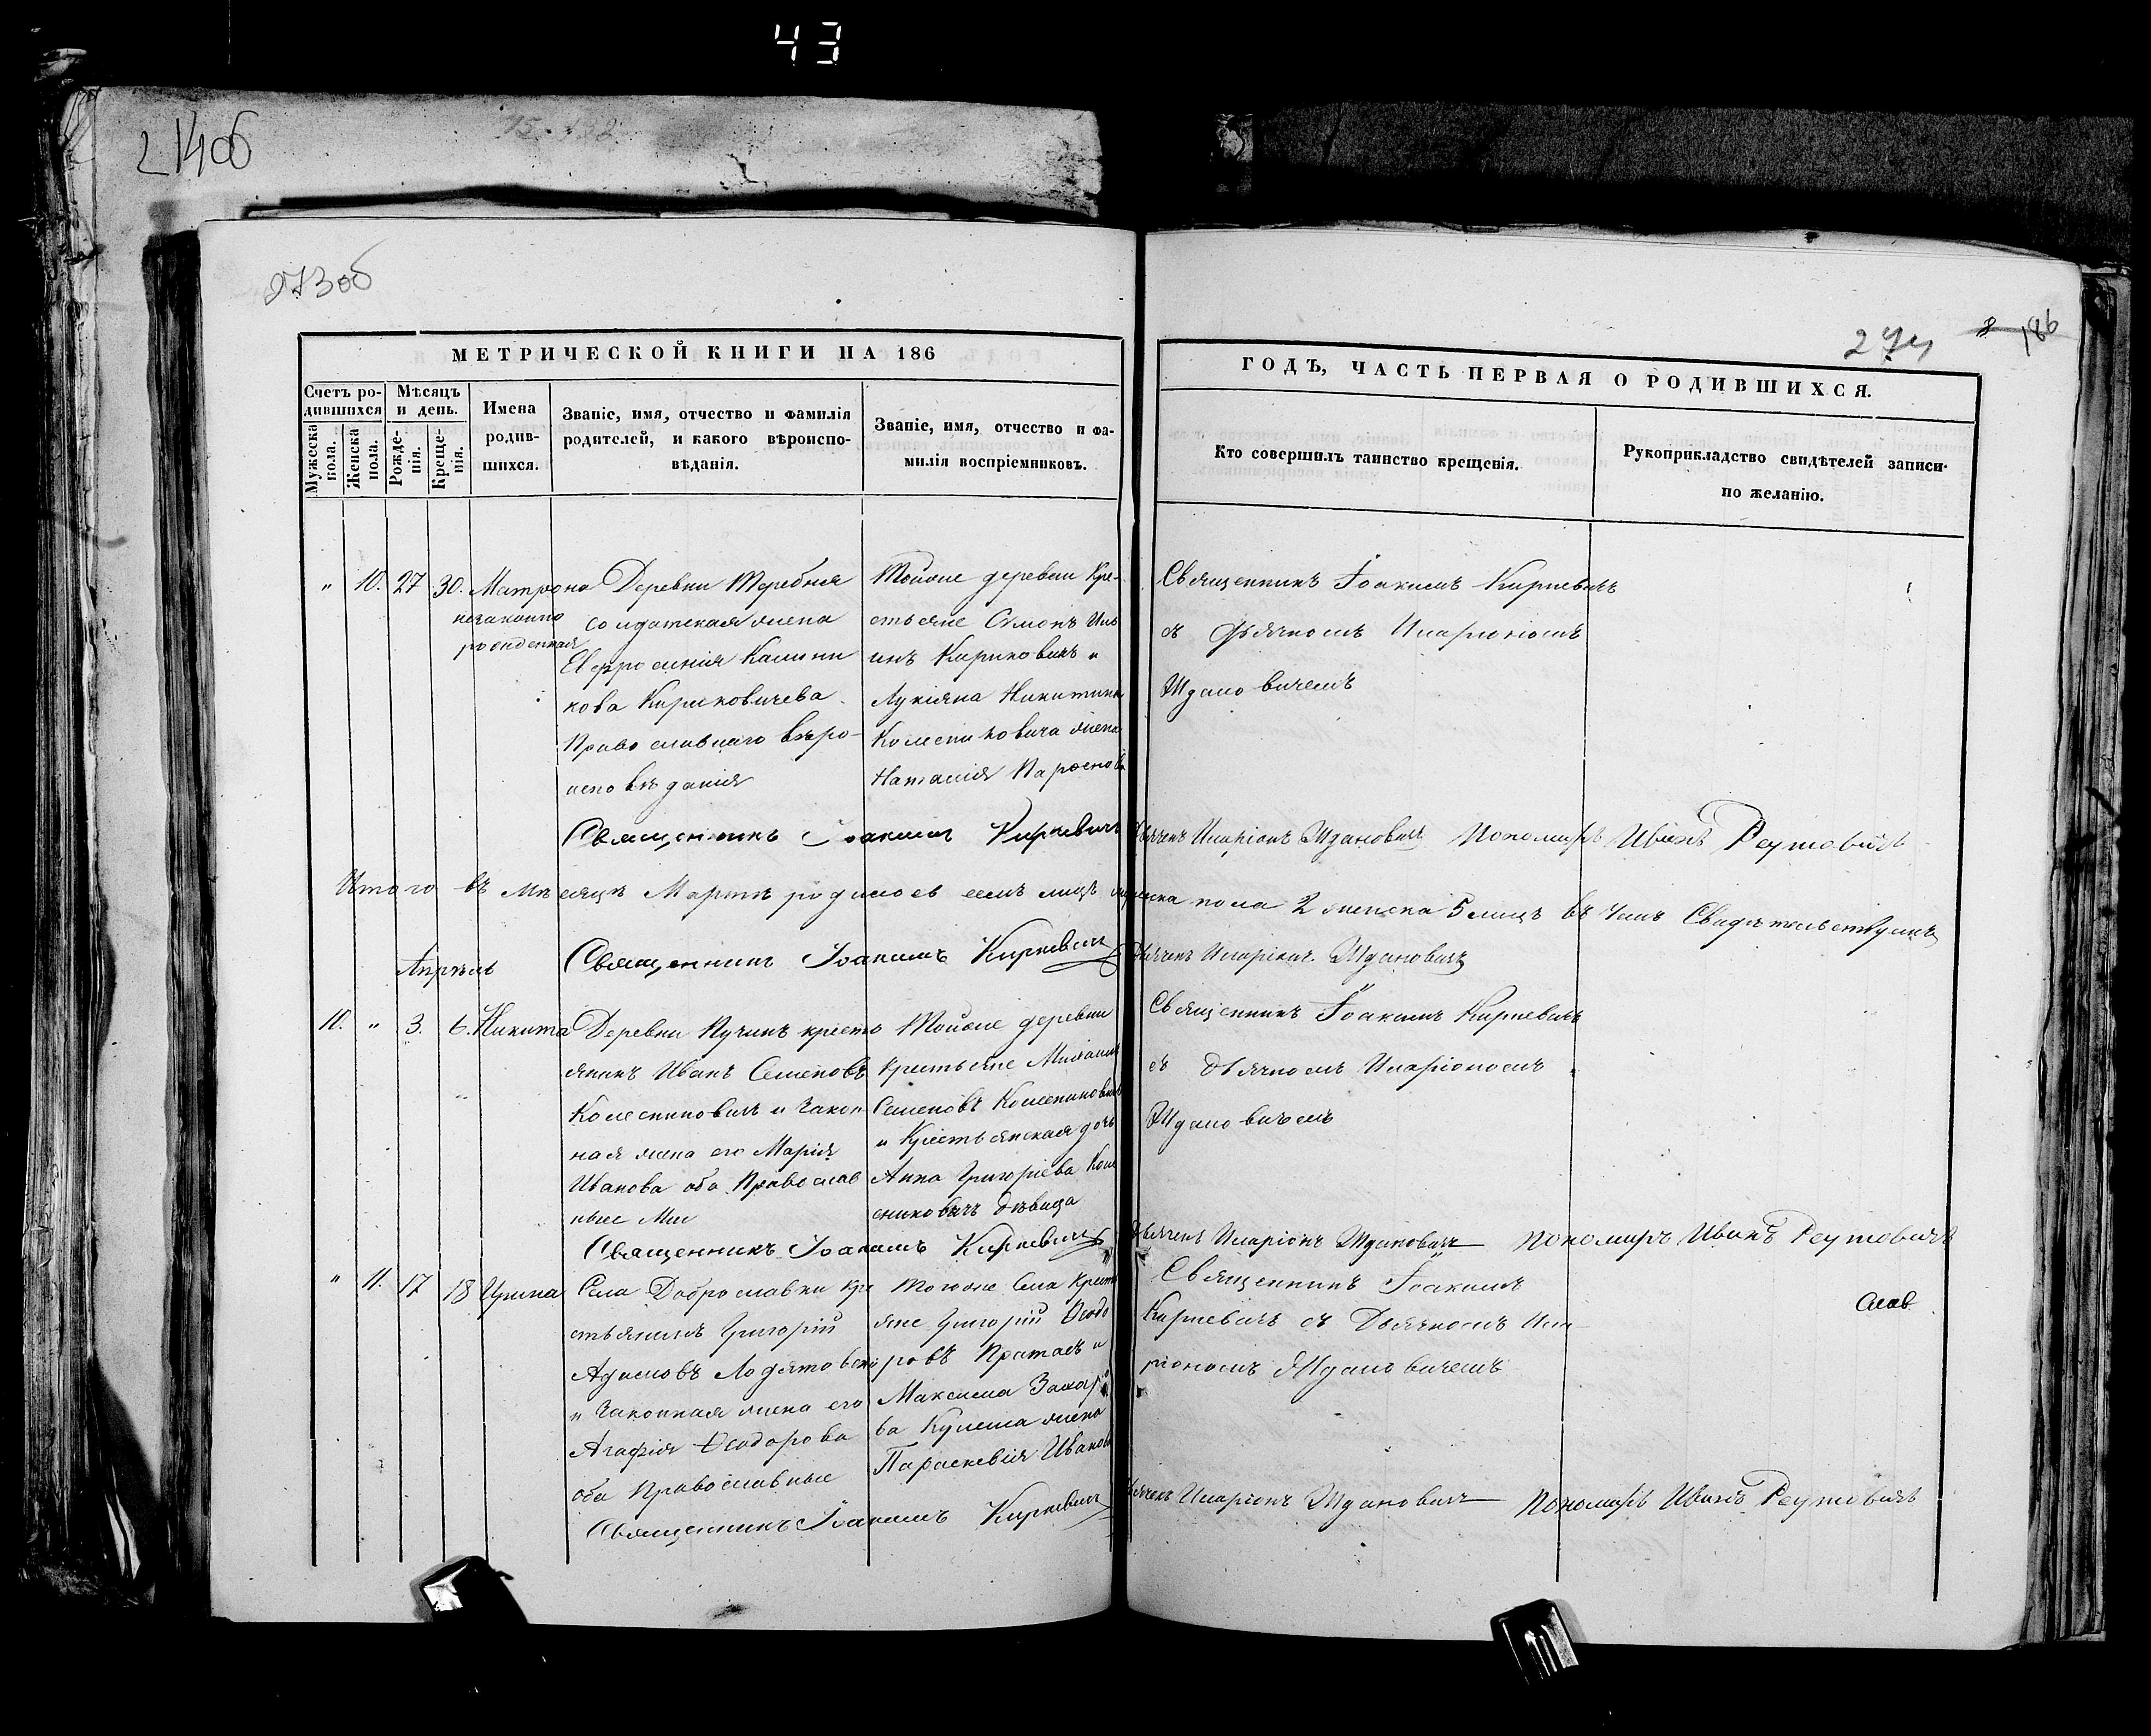 43
21406
273об
274
8
186
МЕТРИЧЕСКОЙ КНИГИ НА 186
ГОДЪ, ЧАСТЬ ПЕРВАЯ О РОДИВШИХСЯ.
Счетъ родившихся
Мужеска пола.
Женска пола.
Мѣсяцъ и день.
Рожденія.
Крещенія.
Имена родившихся.
Званіе, имя, отчество и фамилія
родителей, и какого вѣроиспо-
вѣданія.
Званіе, имя, отчество и фа-
милія воспріемниковъ.
Кто совершилъ таинство крещенія.
Рукоприкладство свидѣтелей записи
по желанію.
" 10. 27 30. Матрона
незаконно
рожденная
Деревни Теребня
солдатская жена
Евфросинія Калини
кова Кириковичева
Православнаго вѣро-
исповѣданія
Тойже деревни Кре-
стьяне Симонъ
инъ Кириковичъ "
Лукіяна Никитина
Колесниковича жена
Наталія
Священникъ Іоакимъ Кирневичъ
съ Дьячкомъ Иларіономъ
Ждановичемъ
Священникъ Іоакимъ Кирневичъ Дьячекъ Иларіонъ Ждановичъ Пономарь Иванъ Реутовичъ
Итого въ мѣсяцѣ Мартѣ родилось семь лицъ мужеска пола 2 женска 5 лицъ въ чемъ Свидѣтельствуемъ
Священникъ Іоакимъ Кирневичъ Дьячекъ Иларіонъ Ждановичъ
Апрѣль
10. " 3. 6. Никита
Деревни Пучинъ кресть
янинъ Иванъ Семеновъ
Колесниковичъ и закон
ная жена его Марія
Иванова оба Православ
ные
Тойже деревни
Крестьяне Михаилъ
Семеновъ Колесниковичъ
и Крестьянская дочь
Анна Григоріева Коле
сниковичъ дѣвица
Священникъ Іоакимъ Кирневичъ
съ Дьячкомъ Иларіономъ
Ждановичемъ
Священникъ Іоакимъ Кирневичъ Дьячекъ Иларіонъ Ждановичъ Пономарь Иванъ Реутовичъ
" 11. 17 18 Ирина
Села Доброславки Кре
стьянинъ Григорій
Адамовъ
и законная жена его
Агафія Ѳеодорова
оба Православные
Тогоже Села Кресть
яне Григорій Ѳеодо
ровъ Пратасъ и
Максима Захарі
ва Кулеша жена
Параскевія Иванова
Священникъ Іоакимъ
Кирневичъ съ Дьячкомъ Ила
ріономъ Ждановичемъ
Священникъ Іоакимъ Кирневичъ Дьячекъ Иларіонъ Ждановичъ Пономарь Иванъ Реутовичъ